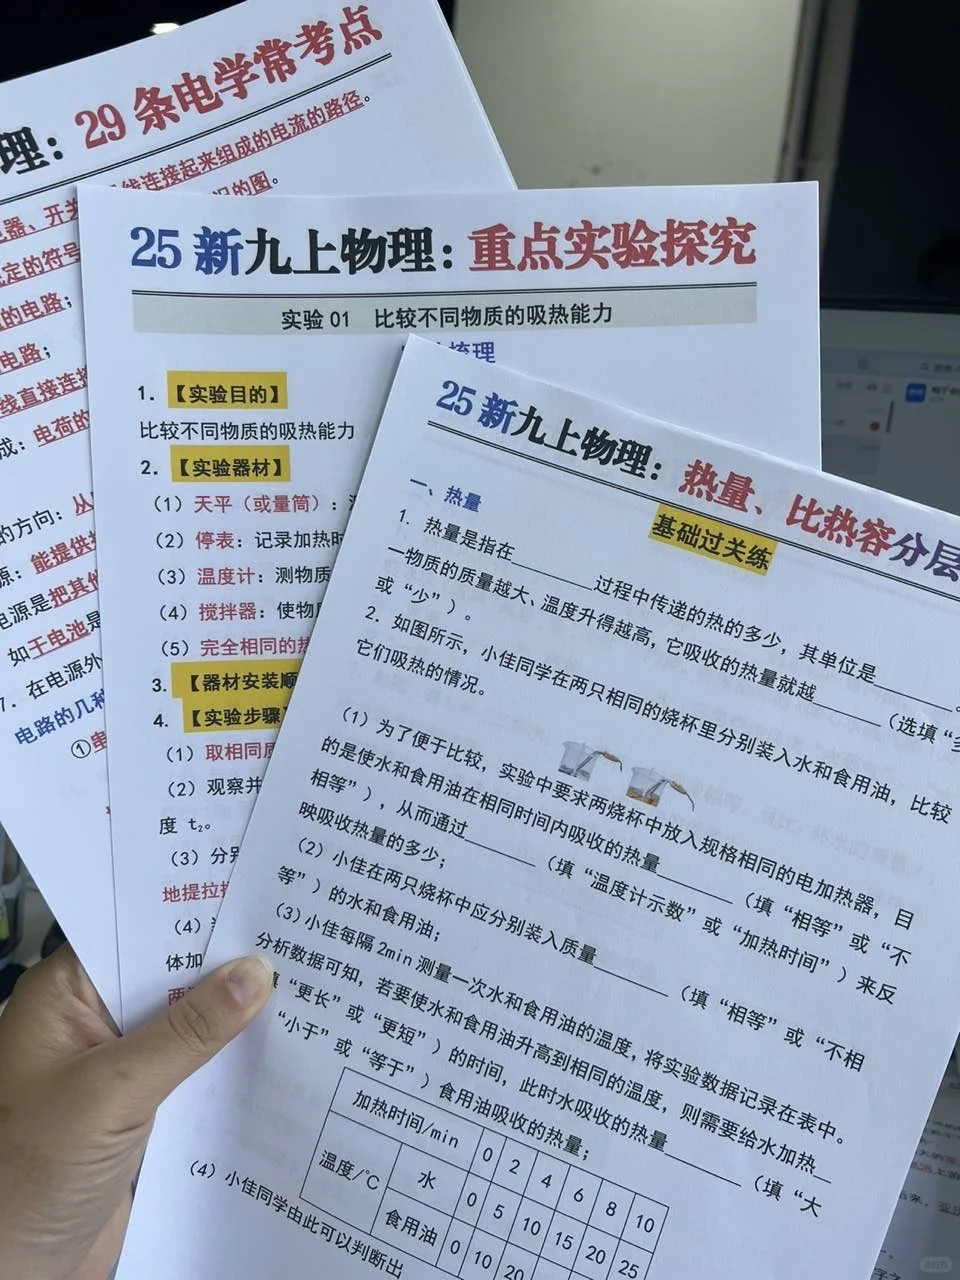 理：29 条电学常考点
线连接起来组成的电流的路径。
电器、开关
况的图。
规定的符号
的电路；
电路；
线直接连接
成：电荷的
的方向：从
源：能提供
电源是把其他
如干电池是
7. 在电源外
电路的几种
①串
25 新九上物理：重点实验探究
实验 01 比较不同物质的吸热能力
梳理
1. 【实验目的】
比较不同物质的吸热能力
2. 【实验器材】
（1）天平（或量筒）：
（2）停表：记录加热时
（3）温度计：测物质
（4）搅拌器：使物
（5）完全相同的热
3. 【器材安装顺
4. 【实验步骤】
（1）取相同质
（2）观察并
度 t₂。
（3）分别
地提拉搅
（4）
体加
两
25 新九上物理：热量、比热容分层
基础过关练
一、热量
1. 热量是指在________过程中传递的热的多少，其单位是________。
一物质的质量越大、温度升得越高，它吸收的热量就越______（选填“多”
或“少”）。
2. 如图所示，小佳同学在两只相同的烧杯里分别装入水和食用油，比较
它们吸热的情况。
（1）为了便于比较，实验中要求两烧杯中放入规格相同的电加热器，目
的是使水和食用油在相同时间内吸收的热量_______（填“相等”或“不
相等”），从而通过_______（填“温度计示数”或“加热时间”）来反
映吸收热量的多少；
（2）小佳在两只烧杯中应分别装入质量_______（填“相等”或“不相
等”）的水和食用油；
（3）小佳每隔 2min 测量一次水和食用油的温度，将实验数据记录在表中。
分析数据可知，若要使水和食用油升高到相同的温度，则需要给水加热__
填“更长”或“更短”）的时间，此时水吸收的热量_______（填“大
“小于”或“等于”）食用油吸收的热量；
加热时间/min 0 2 4 6 8 10
温度/℃ 水 0 5 10 15 20 25
食用油 0 10 20
（4）小佳同学由此可以判断出
小红书